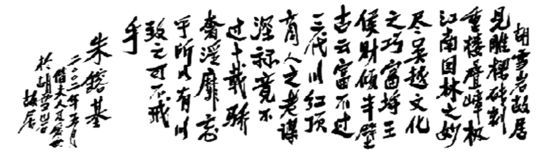 胡雪岩故居
见雕樑砖刻
重楼叠嶂极
江南园林之妙
尽吴越文化
之巧富埒王
侯财倾半壁
古云富不过
三代以红顶
商人之老谋
深算竟不
过十载骄
奢淫靡忘
乎所以有以
致之可不戒
乎
朱镕基
二〇〇二年五月
偕夫人及
于胡雪岩
故居